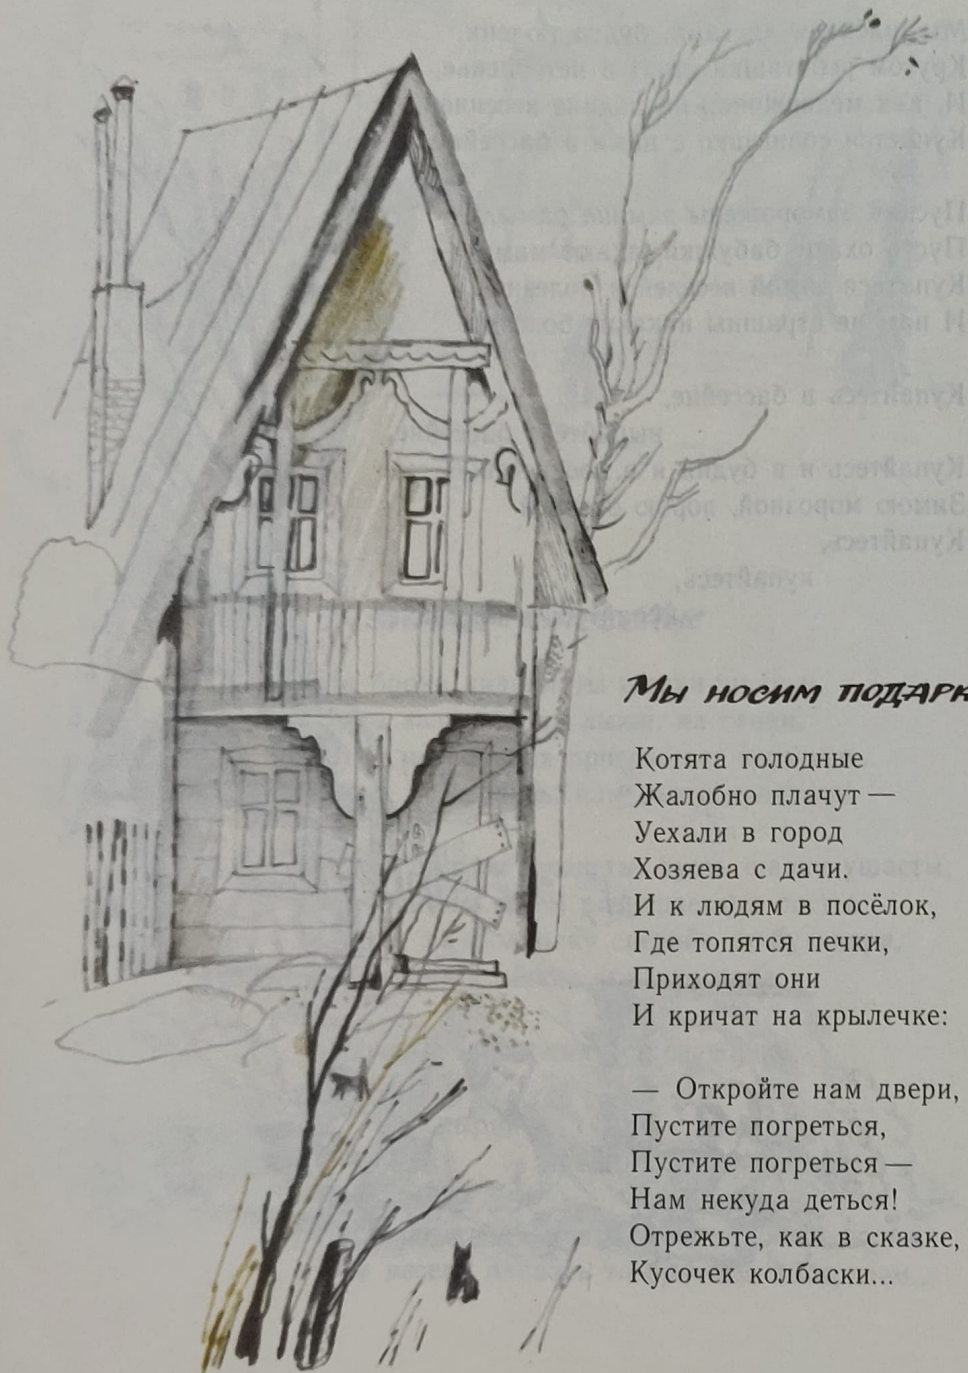 Мы носим
Котята голодные
Жалобно плачут —
Уехали в город
Хозяева с дачи.
И к людям в посёлок,
Где топятся печки,
Приходят они
И кричат на крылечке:
— Откройте нам двери,
Пустите погреться,
Пустите погреться —
Нам некуда деться!
Отрежьте, как в сказке,
Кусочек колбаски...